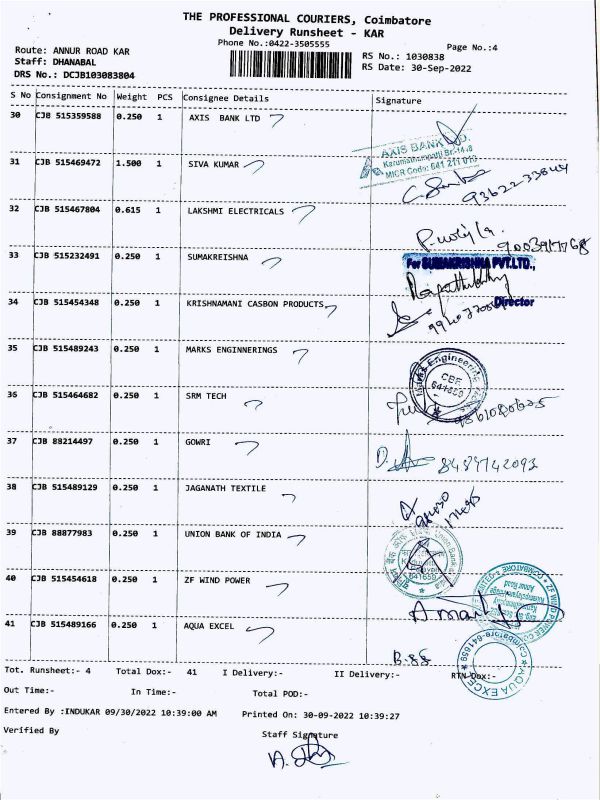 THE PROFESSIONAL COURIERS, Coimbatore
Delivery Runsheet - KAR
Phone No.:0422-3505555
Page No.:4
Route: ANNUR ROAD KAR
RS No.: 1030838
Staff: DHANABAL
RS Date: 30-Sep-2022
DRS No.: DCJB103083804
S No Consignment No Weight PCS Consignee Details Signature
30 CJB 515359588 0.250 1 AXIS BANK LTD
AXIS BANK LTD.
Karumathampatti Br-1448
MICR Code: 641 211 013
31 CJB 515469472 1.500 1 SIVA KUMAR
32 CJB 515467804 0.615 1 LAKSHMI ELECTRICALS
33 CJB 515232491 0.250 1 SUMAKREISHNA
For SUMAKRISHNA PVT.LTD.,
Director
34 CJB 515454348 0.250 1 KRISHNAMANI CASBON PRODUCTS
35 CJB 515489243 0.250 1 MARKS ENGINNERINGS
Marks Engineering
CBE
641659
36 CJB 515464682 0.250 1 SRM TECH
37 CJB 88214497 0.250 1 GOWRI
8489742093
38 CJB 515489129 0.250 1 JAGANATH TEXTILE
39 CJB 88877983 0.250 1 UNION BANK OF INDIA
641659
40 CJB 515454618 0.250 1 ZF WIND POWER
ZF WIND POWER COIMBATORE
41 CJB 515489166 0.250 1 AQUA EXCEL
AQUA EXCEL
Coimbatore-641659
Tot. Runsheet:- 4 Total Dox:- 41 I Delivery:- II Delivery:- RTN Dox:-
Out Time:- In Time:- Total POD:-
Entered By :INDUKAR 09/30/2022 10:39:00 AM Printed On: 30-09-2022 10:39:27
Verified By Staff Signature